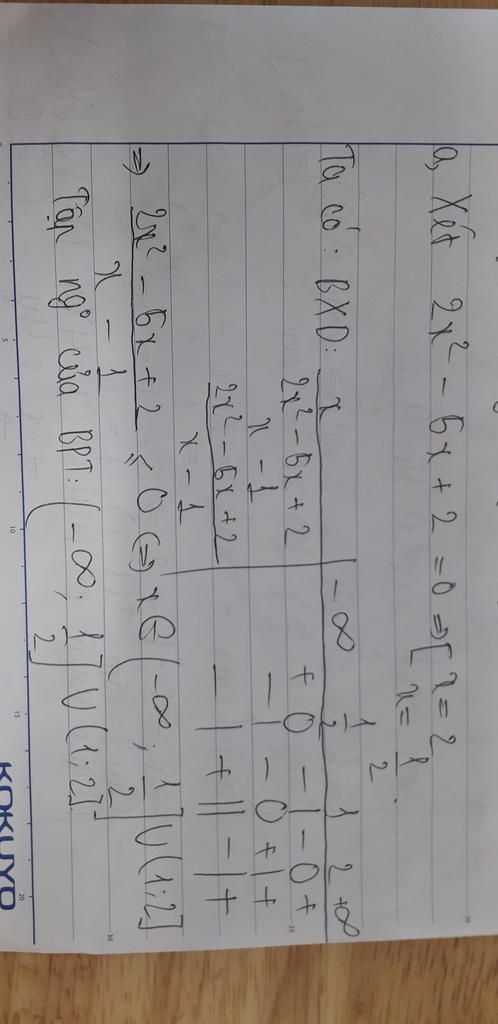 a, Xét 2x² - 6x + 2 = 0 ⇒ [ x = 2
x = 1/2 .
Ta có: BXD:
x | -∞ 1/2 1 2 +∞
2x² - 6x + 2 | + 0 - | - 0 +
x - 1 | - | - 0 + | +
(2x² - 6x + 2)/(x - 1) | - | + || - | +
⇒ (2x² - 6x + 2)/(x - 1) ≤ 0 ⇔ x ∈ (-∞; 1/2] ∪ (1; 2]
Tập ng° của BPT: (-∞; 1/2] ∪ (1; 2].
KOKUYO
5
10
15
20
20
25
30